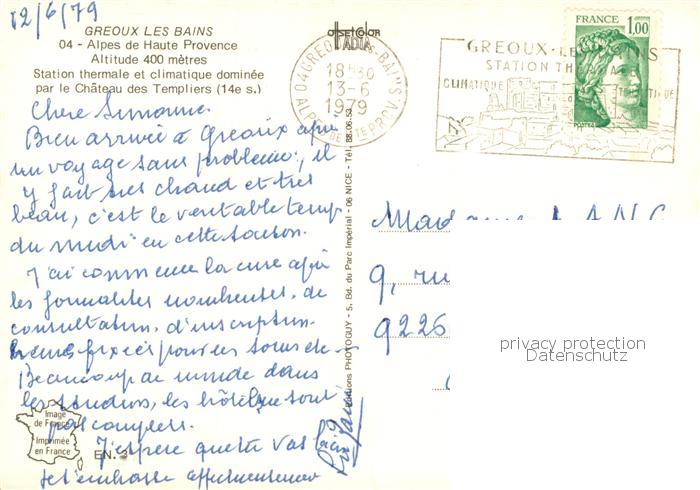 12/6/79
GREOUX LES BAINS
04 - Alpes de Haute Provence
Altitude 400 mètres
Station thermale et climatique dominée
par le Château des Templiers (14e s.)
Chere Simonne.
Bien arrivée à Greoux après
un voyage sans probleme, il
y fait tres chaud et tres
beau, c'est le veritable temps
du midi en cette saison.
J'ai commence la cure après
les formalites nombreuses, de
consultation, d'inscription.
fixées pour les soins etc-
Beaucoup de monde dans
les studios, les hôtels sont
pas complets.
J'espere que tu vas
Je t'embrasse affectueusement
Image
de France
Imprimée
en France
EN. 3
OFFSETCOLOR
IADIA
Editions PHOTOGUY - 5, Bd. du Parc Impérial - 06 NICE - Tél.
04 GREOUX-LES-BAINS
18H30
13-6
1979
ALPES DE HTE PROV.
GREOUX-LES-BAINS
STATION
CLIMATIQUE
FRANCE
1,00
POSTES
Madame LANG
9, ru
9226
privacy protection
Datenschutz